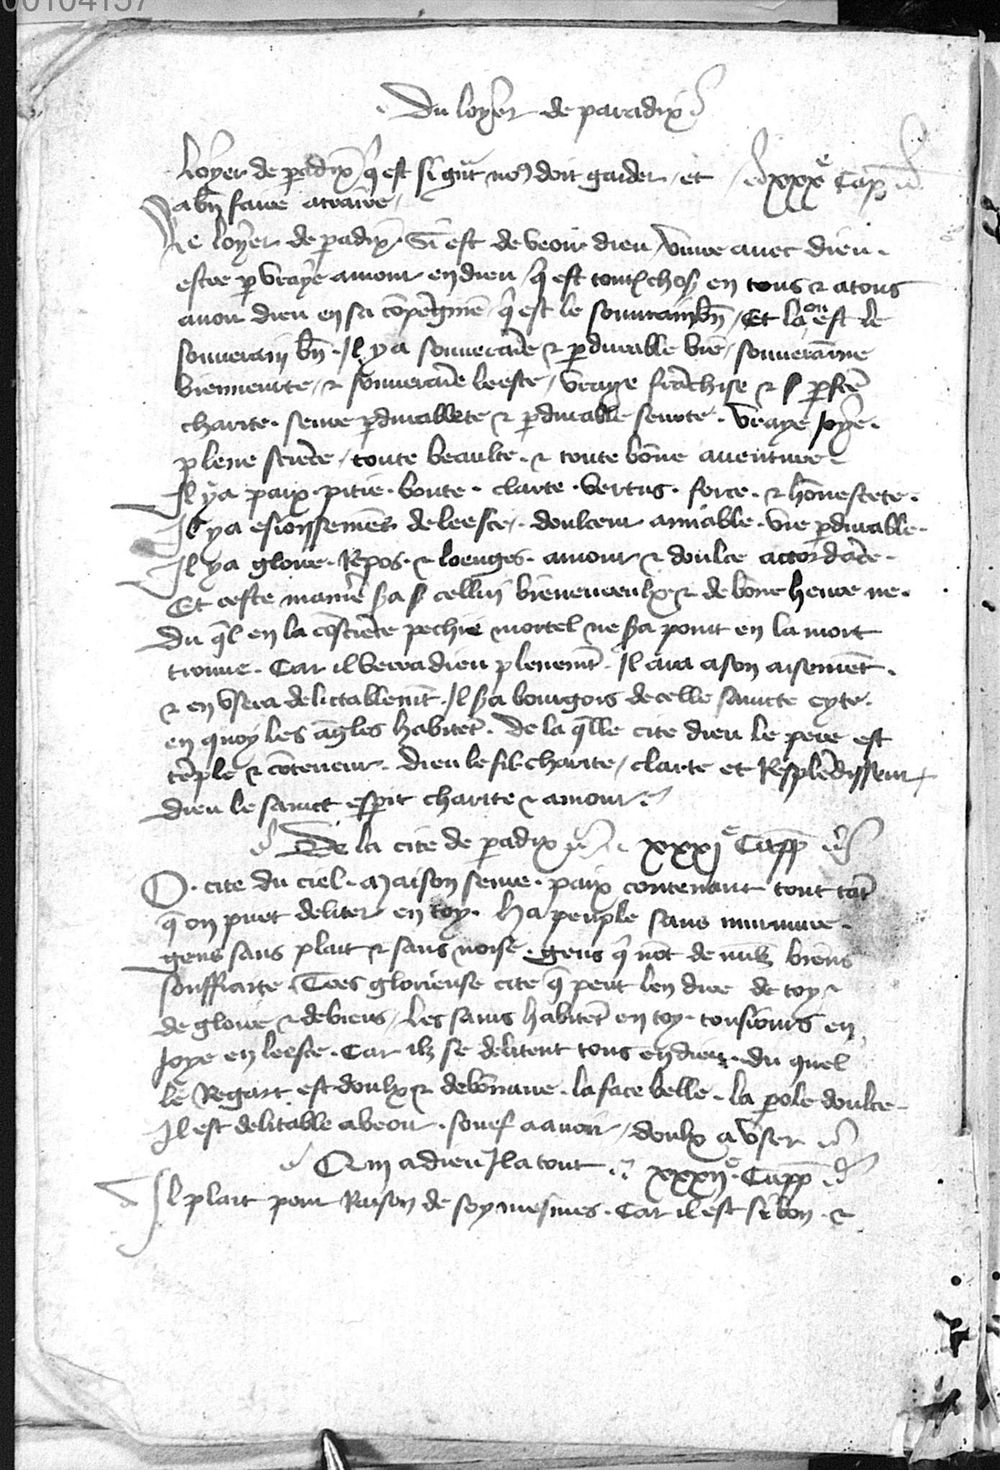 00104157
Du loyer de paradix
Loyer de padix q̄ est si gũt no9 doit garder / et xxxe Capp
a bn̄ faire atraire
Le loyer de padix. Si est de veoir dieu / viure auec dieu.
estre p vraye amour en dieu / q̄ est tout chos en tous & a tous
auoir dieu en sa cōpēgnie / q̄ est le souuerain bn̄ / Et la on est le
souuerain bn̄. Il y a souueraīe & pdurable biē / souuerainne
bieneurte / & souueraīe leesce / vraye frāchise & pfcē
charite. seure pdurablete & pdurable seurte. vraye joye.
plene sciēce / toute beaulte. & toute bōne auenture.
Il y a paix. pitie. bonte. clarte. vertus. force. & hōnestete.
Il y a esioissemēs de leesce. doulceur amiable. vie pdurable.
Il y a gloire. Repos. & loenges. amour & doulce accordāce.
Et ceste maniē sa celluy bieneureulx & de bōne heure ne.
Du q̄l en la cōsciēce pechie mortel ne sa point en la mort
trouue. Car il verra dieu plenemt̄. Il aura a son aisemēt.
& en vsera delictablemt̄. Il sa bourgois de celle saincte cyte.
en quoy les āgles habitēt. De la q̄lle cite dieu le pere est
tēple & cōteneur. Dieu le filz charite / clarte et Resplēdisseur
Dieu le sainct esprit charite & amour
De la cite de padix xxxje Capp
O. cite du ciel. Maison seure. paix contenant tout tāt
q̄ on puet deliter en toy. ha peuple sans murmure.
gens sans plait & sans noise. gens q̄ nōt de nulz biens
souffraite. Tres glorieuse cite q̄ peut len dire de toy &
de gloire & de biens / Les sains habitēt en toy. tousiours en
Joye en leesce. Car ilz se delitent tous en dieu. du quel
le Regart est doulx & debōnaire. la face belle. la pole doulce
Il est delitable a veoir. souef a auoir / doulx a vser
Qui a dieu Il a tout xxxije Capp
Il plait pour Raison de soy mesmes. Car il est si bon &